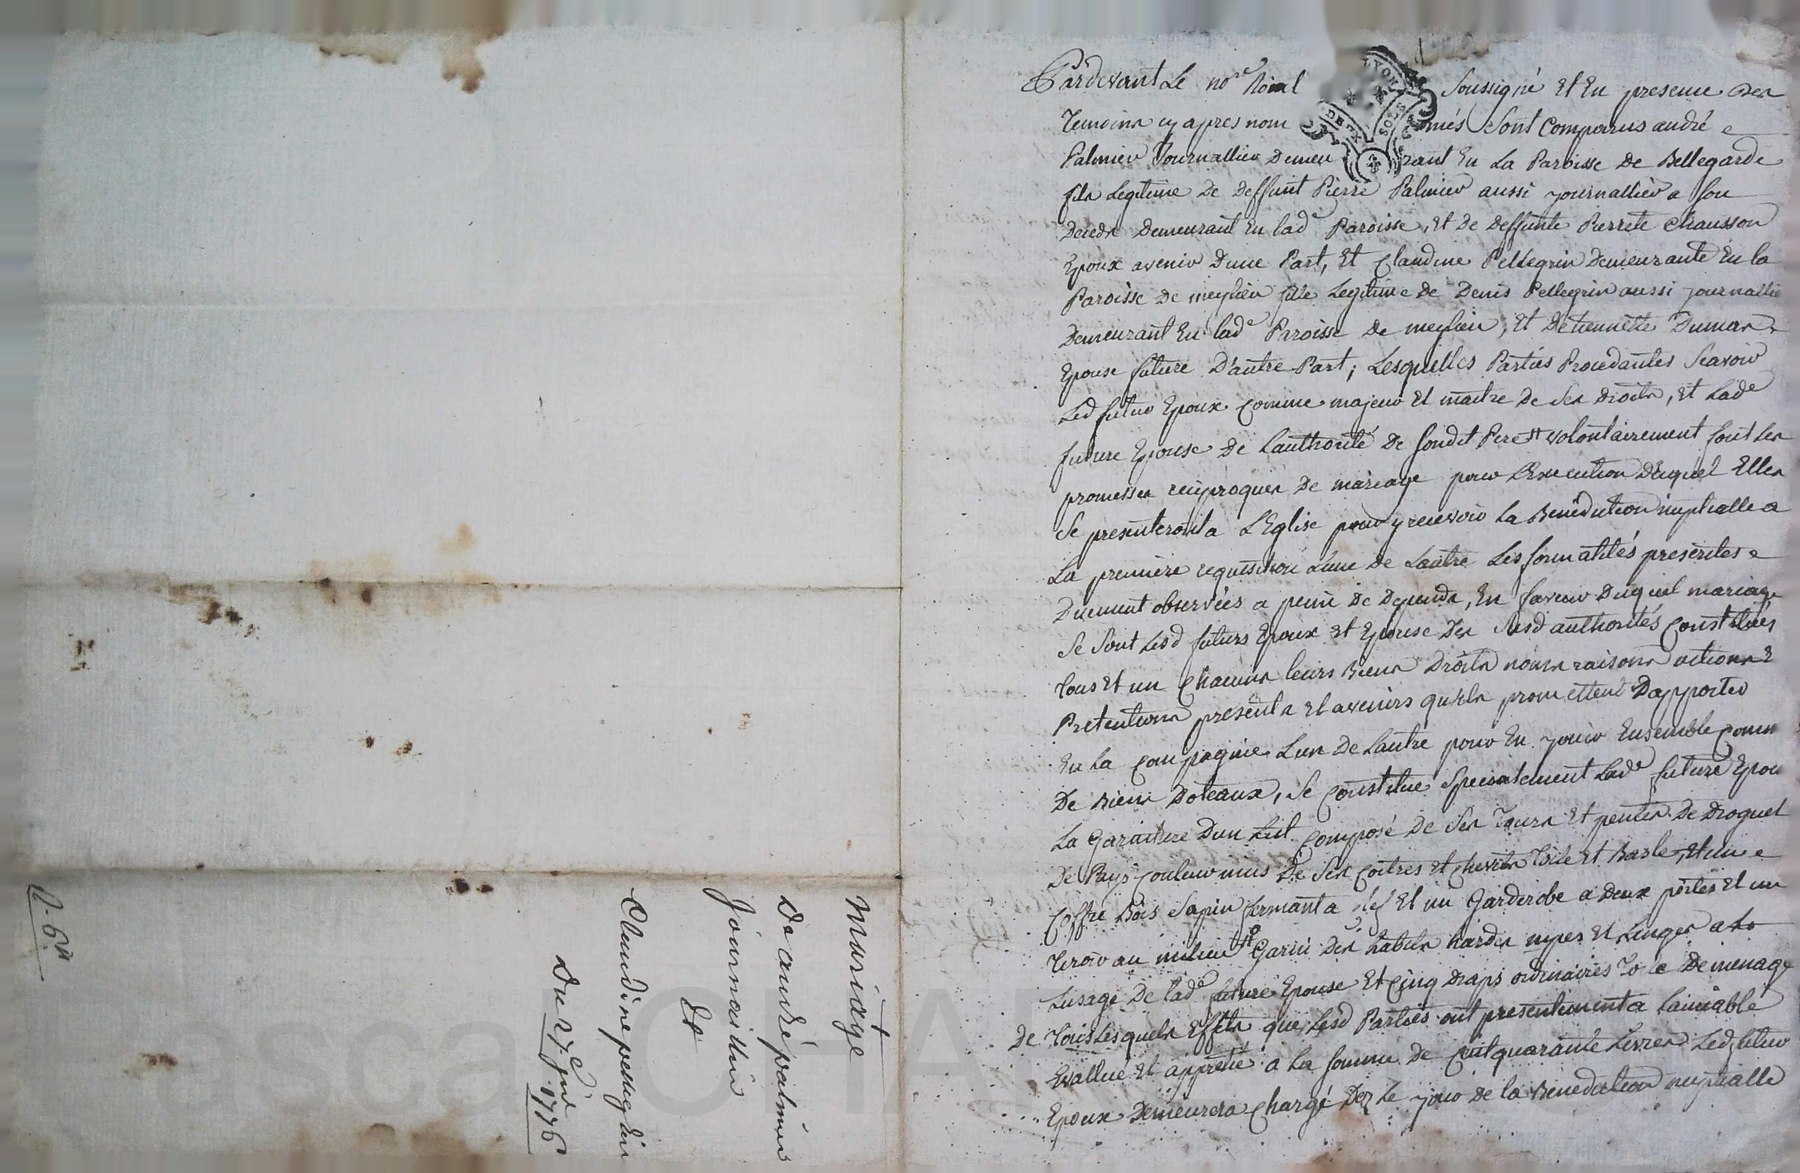 Mariage
De andré palmier
Journaillier
Et
Claudine pellegrin
Du 27e 1776
Pardevant Le nore Roial Soussigné Et En presence Des
Temoins cy apres nommés Sont Comparus andré
Palmier Journallier Demeurant En La Paroisse De Bellegarde
fils Legitime De deffunt Pierre Palmier aussi journallier a son
Deceds Demeurant En lade Paroisse, Et De Deffunte Pierrete Chausson
Epoux avenir Dune Part, Et Claudine Pellegrin Demeurante En la
Paroisse De meylieu fille Legitime de Denis Pellegrin aussi journallie
Demeurant En lade Paroisse De meylieu, Et Detiennette Dumas
Epouse future D'autre Part; Lesquelles Parties Procedantes Scavoir
Led futur Epoux Comme majeur Et maitre De Ses Droits, Et Lade
future Epouse De Lauthorité De Sondit Pere volontairement font Les
promesses reciproques De mariage pour Lexecution Duquel Elles
Se presenteront a L'Eglise pour y recevoir La Benediction nuptialle a
La premiere requisition Lune De Lautre Les formalités prescrites
Duement observées a peine De Depends, En faveur Duquel mariage
Se Sont Lesd futurs Epoux Et Epouse Des Susd authorités Constitués
Tous Et un Chacuns leurs Biens Droits noms raisons actions Et
Pretentions presents Et avenirs quils promettent Dapporter
En La Compagnie Lun De Lautre pour En jouir Ensemble Comm
De Biens Doteaux, Se Constitue Specialement Lade future Epou
La Garniture Dun Lit Composé De Ses Tours Et pentes De Droguet
De Pays Couleur De Ses Coitres Et Chevets Toile Et Basle, Et un
Coffre Bois Sapin fermant a clef Et un Garderobe a Deux portes Et un
Tiroir au milieu Garni Des habits hardes nipes Et Linges a
Lusage De lade future Epouse Et Cinq Draps ordinaires Toile De menage
De Tous Lesquels Effets que Lesd Parties ont presentement a Lamiable
Evallué Et apprétié a La somme De Cent quarante Livres Led futur
Epoux Demeurera Chargé Dez Le jour de la Benediction nuptialle